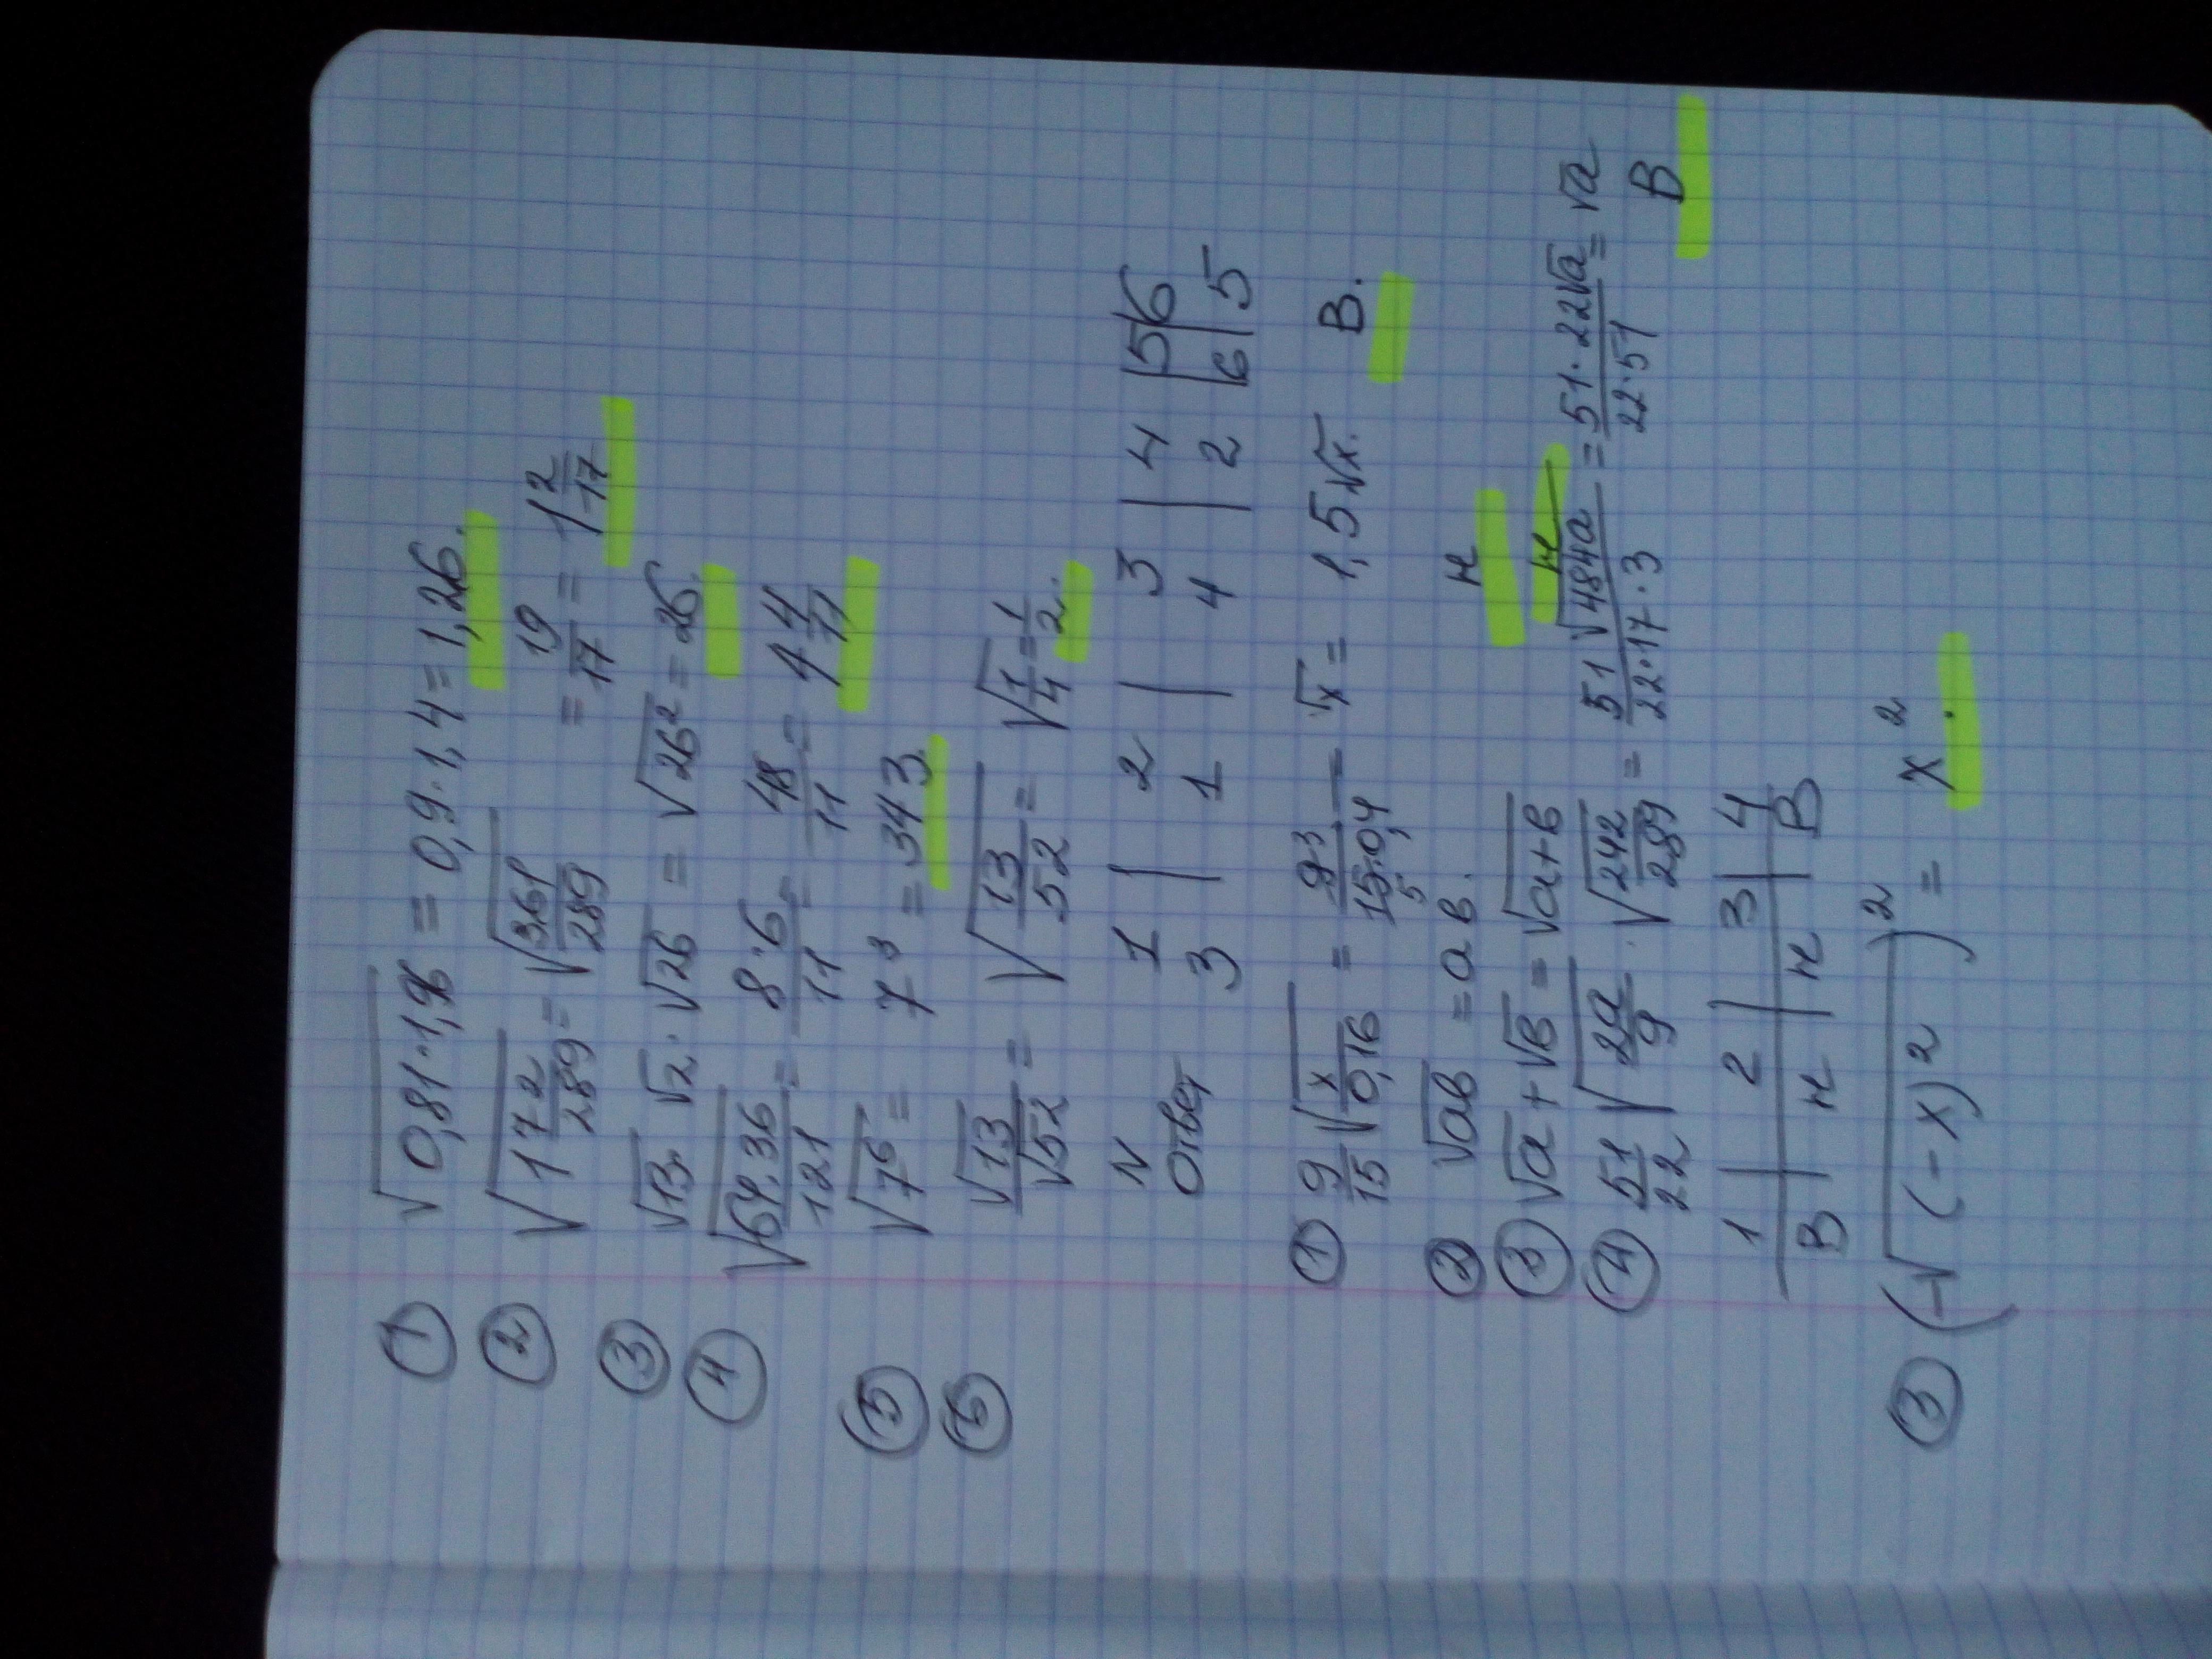 ① √0,81·1,96 = 0,9·1,4 = 1,26.
② √1 72/289 = √361/289 = 19/17 = 1 2/17
③ √13·√2·√26 = √26² = 26.
④ √64·36/121 = 8·6/11 = 48/11 = 4 4/11
⑤ √7⁶ = 7³ = 343.
⑥ √13/√52 = √13/52 = √1/4 = 1/2.
N 1 | 2 | 3 | 4 | 5 | 6
Ответ 3 | 1 | 4 | 2 | 6 | 5
① 9/15 √x/0,16 = 9·3/15·0,4 5 √x = 1,5√x. В.
② √ab = a b. н
③ √a + √b = √a+b н
④ 51/22 √2a/9 · √242/289 = 51√484a/22·17·3 = 51·22√a/22·51 = √a В
1 | 2 | 3 | 4
В | н | н | В
③ (-√(-x)²)² = x².